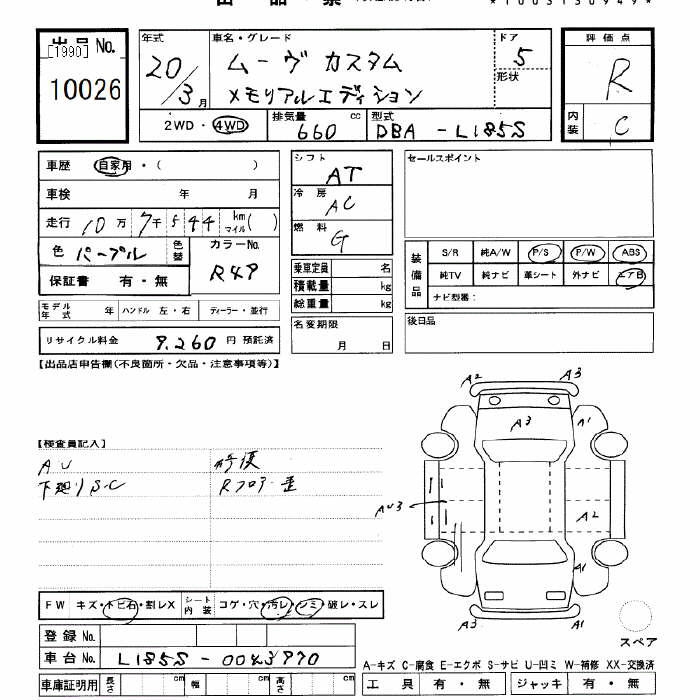 出品 No. [1990]
10026
年式
20/3月
車名・グレード
ムーヴ カスタム
メモリアルエディション
ドア 5
形状
2WD・4WD
排気量 660 cc
型式 DBA-L185S
評価点 R
内装 C
車歴 自家用・( )
車検 年 月
走行 10万7千544 km マイル( )
色 パープル 色替
カラーNo. R49
保証書 有・無
モデル年式 年 ハンドル 左・右 ディーラー・並行
リサイクル料金 9,260 円 預託済
シフト AT
冷房 AC
燃料 G
乗車定員 名
積載量 kg
総重量 kg
名変期限 月 日
セールスポイント
装備品
S/R 純A/W P/S P/W ABS
純TV 純ナビ 革シート 外ナビ エアB
ナビ型番:
後日品
【出品店申告欄(不良箇所・欠品・注意事項等)】
【検査員記入】
AU
下廻りS・C
修復
Rフロアー歪
A2 A3
A3 A1
AU3
A2
A1
A3 A1
FW キズ・トビ石・割レX シート内装 コゲ・穴・汚レ・シミ・破レ・スレ
登録No.
車台No. L185S-0043970
車庫証明用 長さ cm 幅 cm 高さ cm
スペア
A-キズ C-腐食 E-エクボ S-サビ U-凹ミ W-補修 XX-交換済
工具 有・無 ジャッキ 有・無